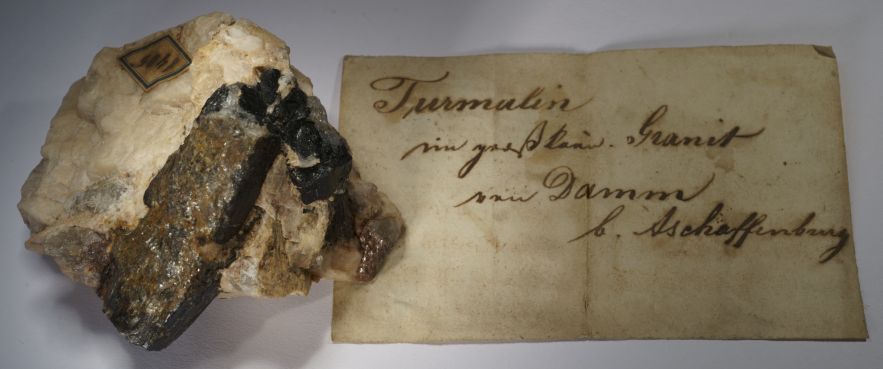 Turmalin
im großkörn. Granit
von Damm
b. Aschaffenburg